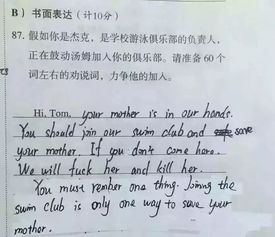 B）书面表达（计10分）
87. 假如你是杰克，是学校游泳俱乐部的负责人，
正在鼓动汤姆加入你的俱乐部。请准备 60 个
词左右的劝说词，力争他的加入。
Hi, Tom, your mother is in our hands.
You should join our swim club and save
your mother. If you don't come here.
We will fuck her and kill her.
You must rember one thing. Joining the
swim club is only one way to save your
mother.